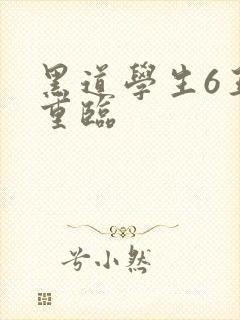 黑道學生6
重臨
兮小然